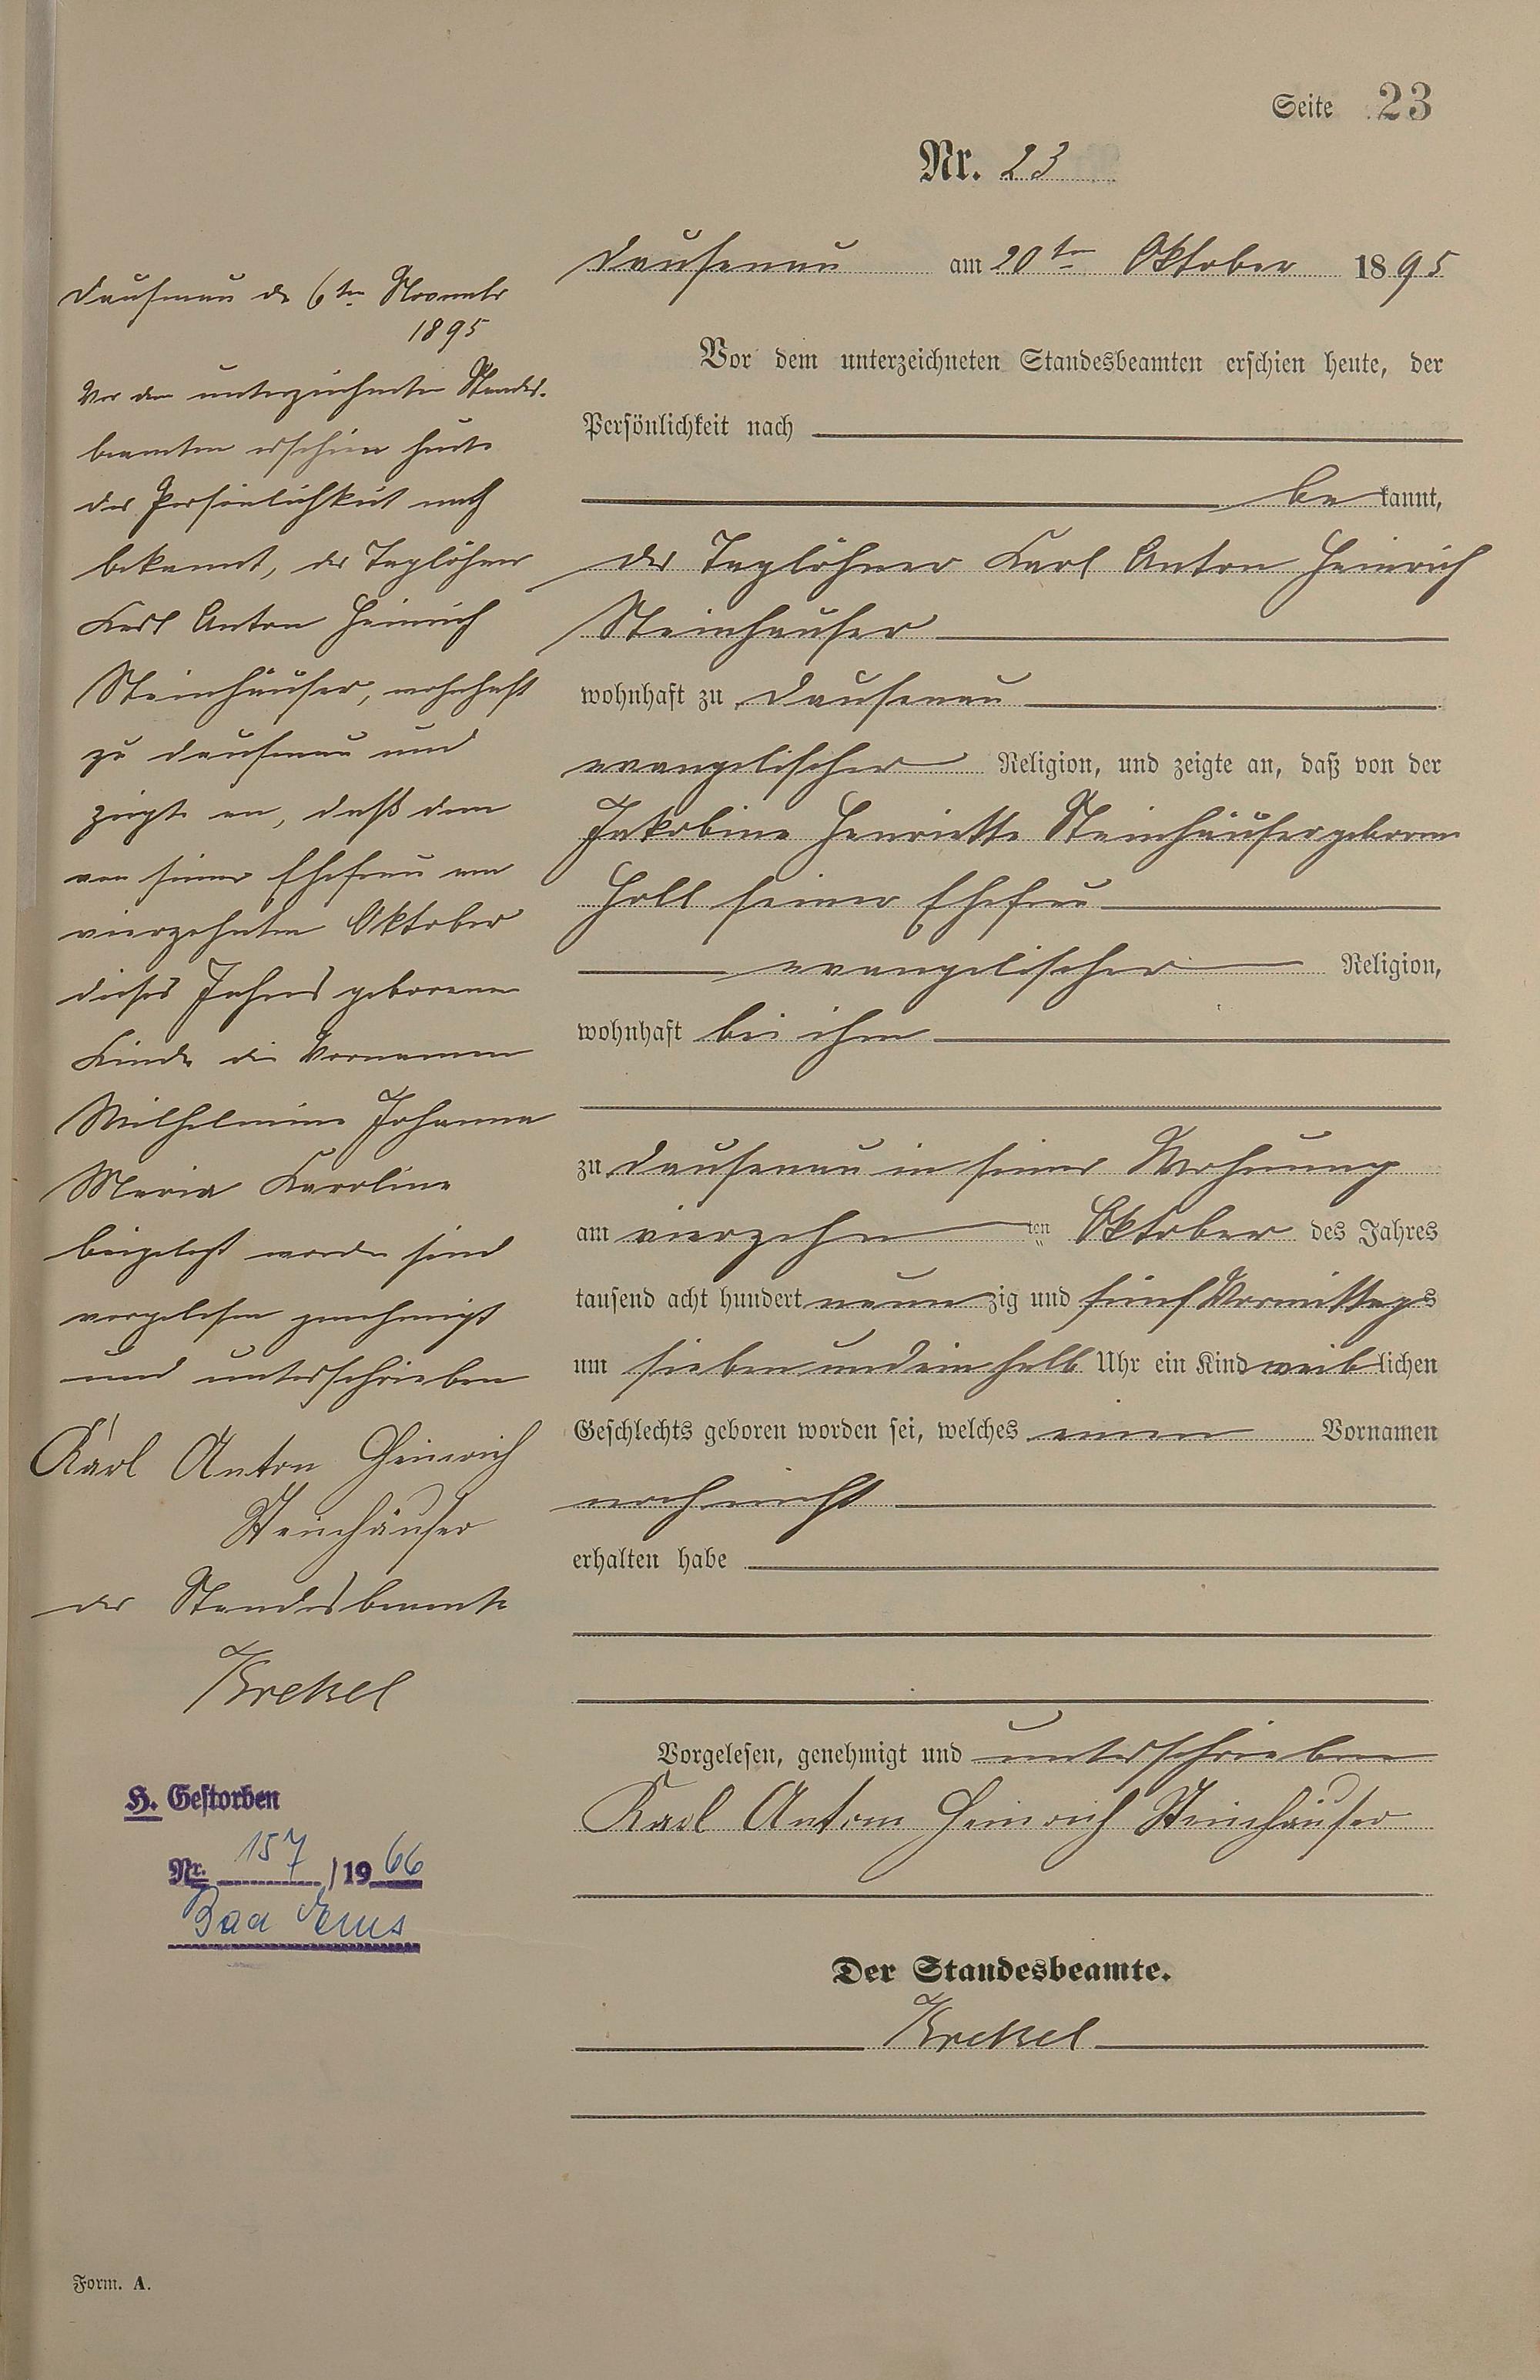 Seite 23
Nr. 23
Dausenau am 20ten Oktober 1895
Vor dem unterzeichneten Standesbeamten erschien heute, der
Persönlichkeit nach
be kannt,
der Taglöhner Karl Anton Heinrich
Steinhäuser
wohnhaft zu Dausenau
evangelischer Religion, und zeigte an, daß von der
Jakobine Henriette Steinhäuser geborene
Holl seiner Ehefrau
evangelischer Religion,
wohnhaft bei ihm
zu Dausenau in seiner Wohnung
am vierzehn ten Oktober des Jahres
tausend acht hundert neun zig und fünf Vormittags
um sieben und ein halb Uhr ein Kind weib lichen
Geschlechts geboren worden sei, welches einen Vornamen
noch nicht
erhalten habe
Vorgelesen, genehmigt und unterschrieben
Karl Anton Heinrich Steinhäuser
Der Standesbeamte.
Krekel
Dausenau den 6ten November
1895
Vor dem unterzeichneten Standes-
beamten erschien heute
der Persönlichkeit nach
bekannt, der Taglöhner
Karl Anton Heinrich
Steinhäuser, wohnhaft
zu Dausenau und
zeigte an, daß dem
von seiner Ehefrau am
vierzehnten Oktober
dieses Jahres geborenen
Kinde die Vornamen
Wilhelmine Johanna
Maria Karoline
beigelegt worden sind
vorgelesen genehmigt
und unterschrieben
Karl Anton Heinrich
Steinhäuser
der Standesbeamte
Krekel
H. Gestorben
Nr. 157 /1966
Bad Ems
Form. A.